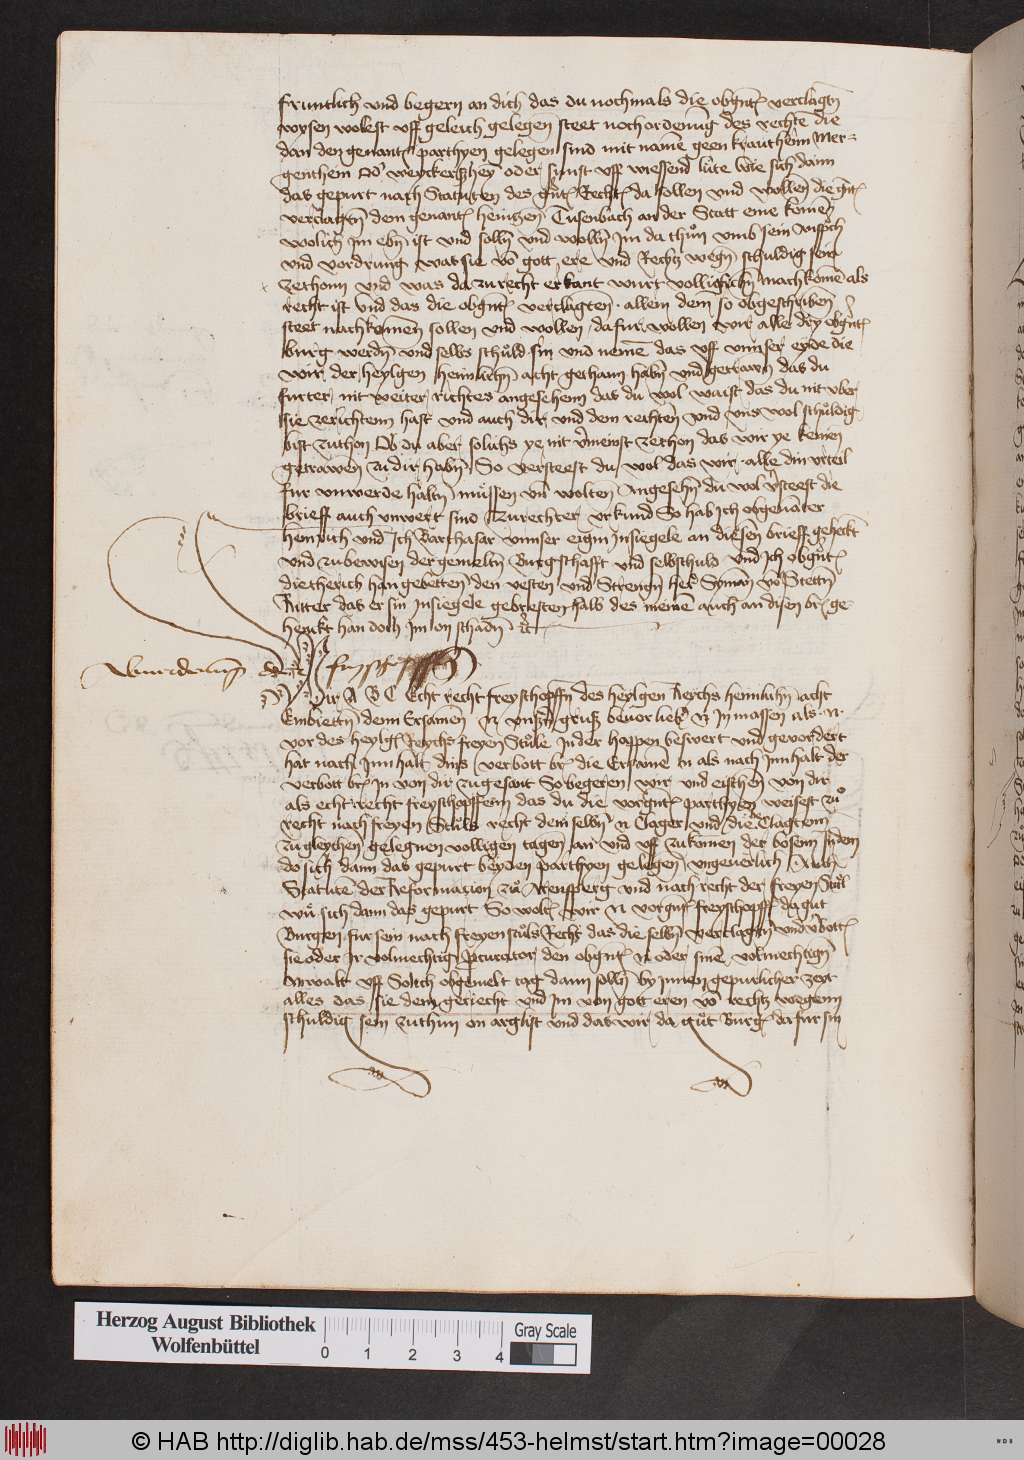 fruntlich und begern an dich das du nochmals die obgnt verclagtn
wysen wolest uff geleich gelegen steet noch ordenung des rechte die
dan den genant parthyen gelegen sind mit name geen krauthein Mer-
genthein oder sunst uff wiessend lute wie sich dann
das gepurt nach Statuten des Recht da sollen und wollen die gnt
verclagtn dem genant heintzen Tusenbach an der Statt eine komen
wolich im ebn ist und solln und wolln im da thun umb sein
und vordrung was sie vo gott ere und Rechtz wegn schuldig sein
zethonn und was da zu recht erkant wurt nachkome als
recht ist und das die obgnt verclagten allein dem so obgeschriben
steet nachkomen sollen und wollen dafur wollen wir alle dry obgnt
burg werdn und selbs schuld sin und neme das uff unnser eyde die
wir der heylgen heimlichn acht gethann habn und getrawn das du
furter nit weiter richtes angesehenn das du wol waist das du nit uber
sie zerichtenn hast und auch dir und dem rechten und uns wol schuldig
bist zuthon Ob du aber solichs ye nit vermeinst zethon das wir ye keinen
getrawen zu dir habn So versteest du wol das wir alle din urteil
fur unwerde haltn mussen un wolten Angesehn du wol versteest die
brieff auch unwert sind zu rechter urkund So hab ich obgenater
heinrich und Ich Barthasar unnser eigin Insiegele an diesen brieff gehenkt
und zubewisen der gemeltn Burgschafft und selbschuld und Ich obgnt
dietherich han gebetten den vesten und Strengn her Symon vo Stettn
Ritter das er sin Insiegele gebresten halb des meinen auch an disen br ge-
henckt han doch im on schadn
freyschopff
Wir A B C Echt recht freyschopffn des heylgen Reychs heimlichn acht
Embiettn denn Ersamen N unsern gruß bevor lieber N In massen als N
vor des heylg Reychs freyen Stule In der hoppen beswert und gevordert
hat nach Inn halt dins verbott br die Ersame N als nach Innhalt der
verbott br In von dir zugesant So begeren wir und eischen von dir
als echt recht freyschopffenn das du die vorgnt parthyen weisest zu
recht nach freyen Stuls recht dem selbn N Clager und die Clagtenn
zu gleychen gelegnen volligen tagen an und uff zukomen der bosenn
do sich dann das gepurt beyden parthyen gelegen ungeverlich Auch
Statuten der Reformacion zu Arensperg und nach recht der freyen Stul
wu sich dann das gepurt So wolt wir N vorgnt freyschopff da gut
Burgen fur sein nach freyen stuls Rechtz das die selbn verclagtn und verbott
sie oder Ir volmechtig procurator den obgnt N oder sinen volmechtign
Anwalt uff Solich obgemelt tag dann solln by innen gepurlicher zeyt
alles das sie dem geriecht und im von gott eren vo rechtz wegenn
schuldig sein zuthun on arglist und das wir da gut Burg dafur sin
Herzog August Bibliothek
Wolfenbüttel
0 1 2 3 4
Gray Scale
© HAB http://diglib.hab.de/mss/453-helmst/start.htm?image=00028